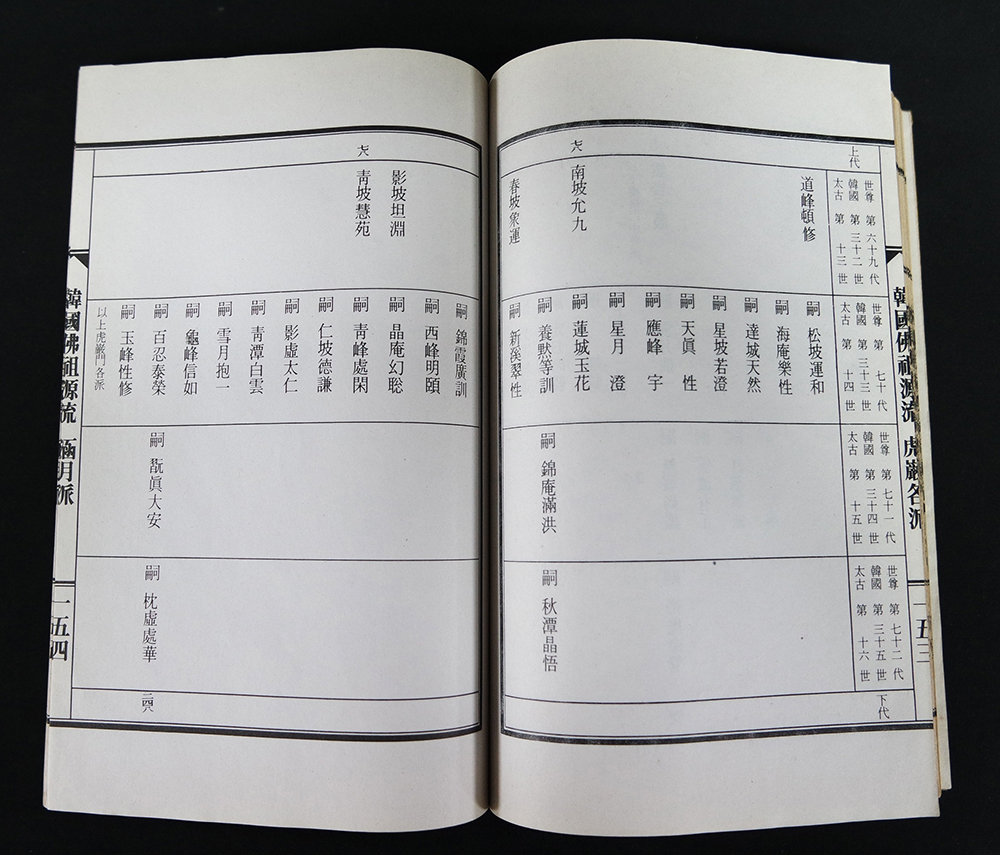 韓國佛祖源流 虎巖各派
一五三
上代
世尊 第 六十九代
韓國 第 三十二世
太古 第 十三世
世尊 第 七十代
韓國 第 三十三世
太古 第 十四世
世尊 第 七十一代
韓國 第 三十四世
太古 第 十五世
世尊 第 七十二代
韓國 第 三十五世
太古 第 十六世
下代
道峰頓修
南坡允九
春坡象運
嗣 松坡運和
嗣 海庵樂性
嗣 達城天然
嗣 星坡若澄
嗣 天眞 性
嗣 應峰 宇
嗣 星月 澄
嗣 蓮城玉花
嗣 養默等訓
嗣 新溪翠性
嗣 錦庵滿洪
嗣 秋潭晶悟
影坡坦淵
靑坡慧苑
嗣 錦霞廣訓
嗣 西峰明頤
嗣 晶庵幻聡
嗣 靑峰處閑
嗣 仁坡德謙
嗣 影虛太仁
嗣 靑潭白雲
嗣 雪月抱一
嗣 龜峰信如
嗣 百忍泰榮
嗣 玉峰性修
以上虎巖門各派
嗣 翫眞大安
嗣 枕虛處華
韓國佛祖源流 涵月派
一五四